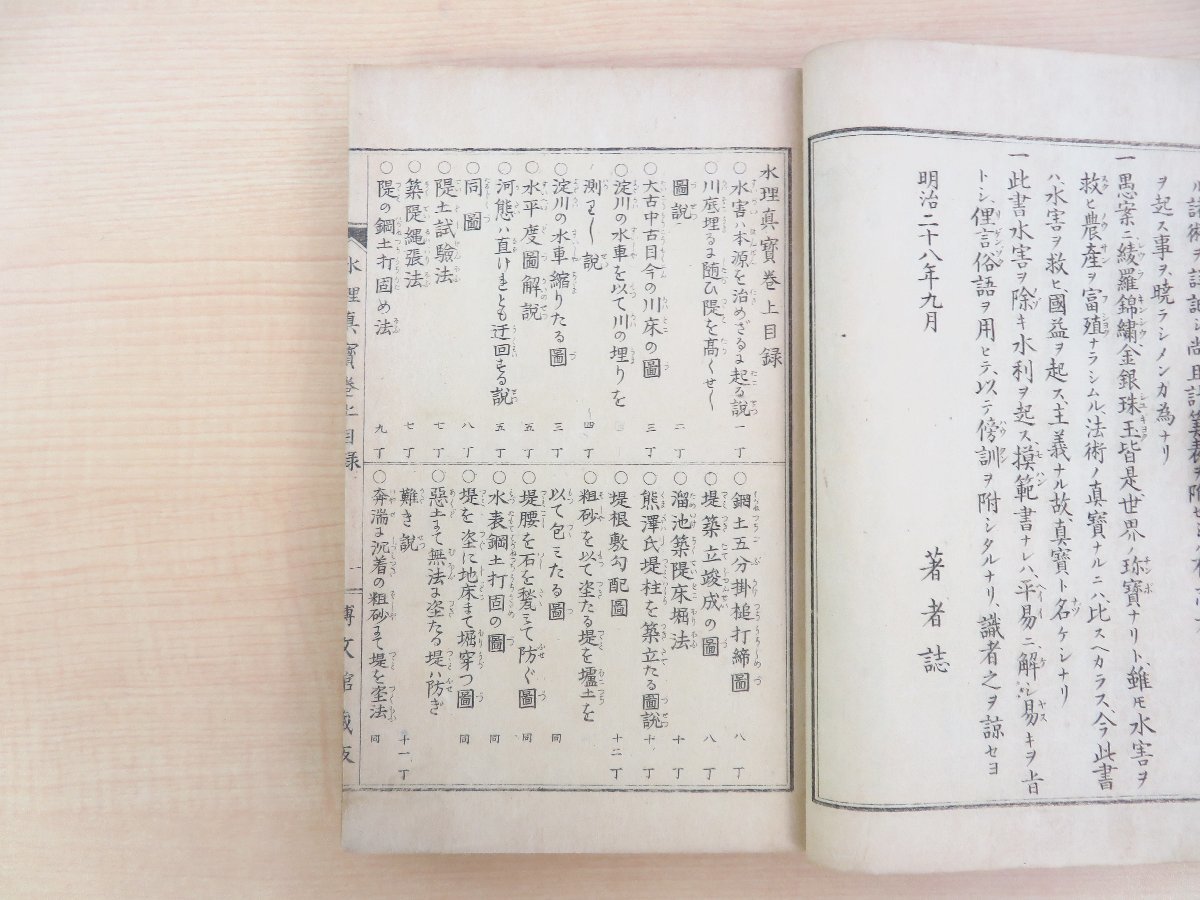 ヲ起ス事ヲ、曉ラシメンカ為ナリ
一愚案ニ綾羅錦繡金銀珠玉、皆是世界ノ珎寶ナリト、雖モ水害ヲ
救ヒ農產ヲ富殖ナラシムル、法術ノ真寶ナルニハ、比スヘカラス、今此書
ハ、水害ヲ救ヒ、國益ヲ起ス、主義ナル故、真寶ト名ケシナリ
一此書水害ヲ除キ水利ヲ起ス、摸範書ナレハ、平易ニ、解シ易キヲ旨
トシ、俚言俗語ヲ用ヒテ、以テ傍訓ヲ附シタルナリ、識者之ヲ諒セヨ
明治二十八年九月
著者誌
水理真寶巻上目録
○水害ハ本源を治めざるよ起る說 一丁
○川底埋るよ随ひ隄を髙くせし
圖說 二丁
○大古中古目今の川床の圖 三丁
○淀川の水車を以て川の埋りを
測りし說 四丁
○淀川の水車縮りたる圖 三丁
○水平度圖解說 五丁
○河態ハ直けれとも迂回する說 五丁
○同圖 八丁
○隄土試驗法 七丁
○築隄縄張法 七丁
○隄の鋼土打固め法 九丁
○鋼土五分掛槌打締圖 八丁
○堤築立竣成の圖 八丁
○溜池築隄床堀法 十丁
○熊澤氏堤柱を築立たる圖說 十丁
○堤根敷勾配圖 十二丁
○粗砂を以て垒たる堤を壚土を
以て包みたる圖 同
○堤腰を石を甃みて防ぐ圖 同
○水表鋼土打固の圖 同
○堤を垒に地床まて堀穿つ圖 同
○惡土まて無法よ垒たる堤ハ防ぎ
難き說 十一丁
○奔湍よ沉着の粗砂まて堤を垒法 同
水理真寶巻上目録 一 博文館藏版